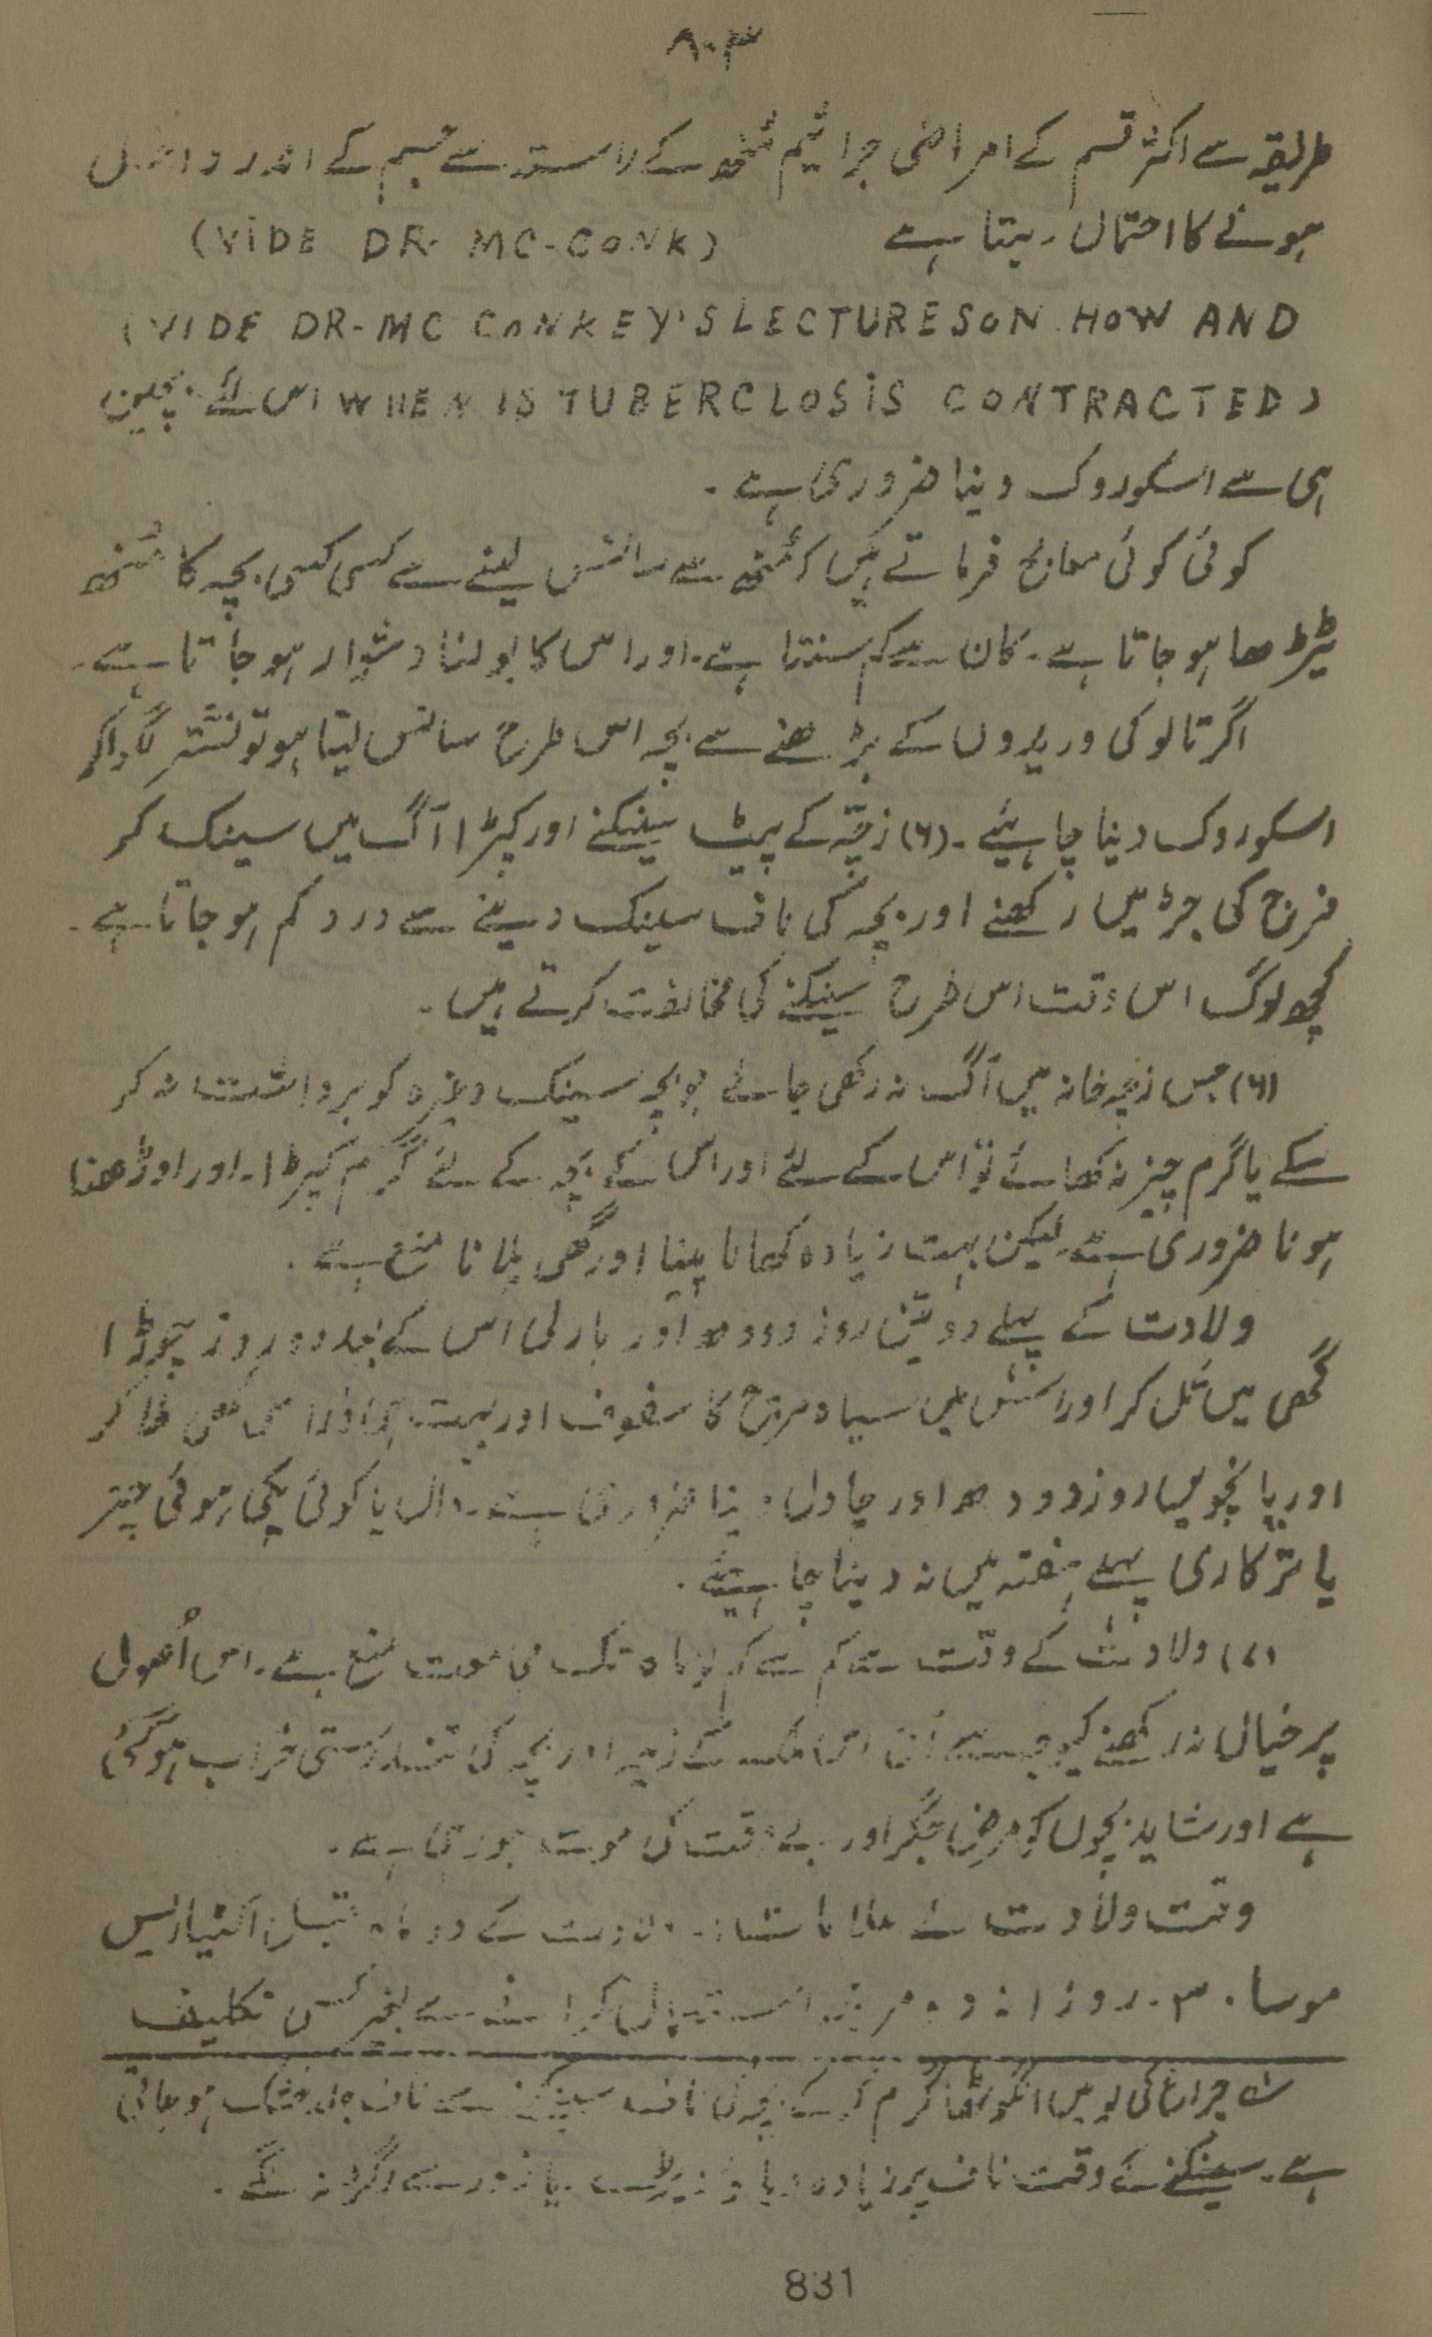 ۸۰۳
طریقہ سے اکثر قسم کے امراضی جراثیم منھ کے راستہ سے جسم کے اندر داخل
ہونے کا احتمال رہتا ہے (VIDE DR. MC-CONK)
(VIDE DR-MC CONKEY'S LECTURES ON HOW AND
WHEN IS TUBERCLOSIS CONTRACTED) اس لئے بچپن
ہی سے اسکو روک دینا ضروری ہے ۔
کوئی کوئی معالج فرماتے ہیں کہ منھ سے سانس لینے سے کسی کسی بچہ کا منھ
ٹیڑھا ہو جاتا ہے ۔ کان سے کم سنتا ہے ۔ اور اس کا بولنا دشوار ہو جاتا ہے ۔
اگر تالو کی وریدوں کے بڑھنے سے بچہ اس طرح سانس لیتا ہو تو نشتر لگوا کر
اسکو روک دینا چاہیئے ۔ (۶) زچّہ کے پیٹ سینکنے اور کپڑا آگ میں سینک کر
فرج کی جڑ میں رکھنے اور بچہ کی ناف سینک دینے سے درد کم ہو جاتا ہے ۔
کچھ لوگ اس وقت اس طرح سینکنے کی مخالفت کرتے ہیں ۔
(۶) جس زچہ خانہ میں آگ نہ رکھی جائے جو بچہ سینک وغیرہ کو برداشت نہ کر
سکے یا گرم چیز نہ کھائے تو اس کے لئے اور اس کے بچہ کے لئے گرم کپڑا ۔ اور اوڑھنا
ہونا ضروری ہے لیکن بہت زیادہ کھانا پینا اور گھی پلانا منع ہے ۔
ولادت کے پہلے دو تین روز دودھ اور بارلی اس کے بعد دو روز چوڑا
گھی میں تل کر اور اسمیں سیاہ مرچ کا سفوف اور بہت ہی ذرا سا گھی ملا کر
اور پانچویں روز دودھ اور چاول دینا ضروری ہے ۔ دال یا کوئی پکی ہوئی چیز
یا ترکاری پہلے ہفتہ میں نہ دینا چاہیئے ۔
(۷) ولادت کے وقت سے کم سے کم ماہ تک مجامعت منع ہے ۔ اس اُصول
پر خیال نہ رکھنے کیوجہ سے اس ملک کے زچہ اور بچہ کی تندرستی خراب ہو گئی
ہے اور شاید بچوں کو مرض جگر اور بے وقت کی موت ہو رہی ہے ۔
وقت ولادت کے علامات :۔ ولادت کے دو ماہ قبل
موسا ۔ ۳ ۔ روزانہ دو مرتبہ استعمال کرانے سے بغیر کسی تکلیف
چراغ کی لو میں انگوٹھا گرم کر کے بچہ کی ناف سینکنے سے ناف جلد خشک ہو جاتی
ہے ۔ سینکنے کے وقت ناف پر زیادہ دباؤ نہ پڑے یا زور سے رگڑ نہ لگے ۔
831